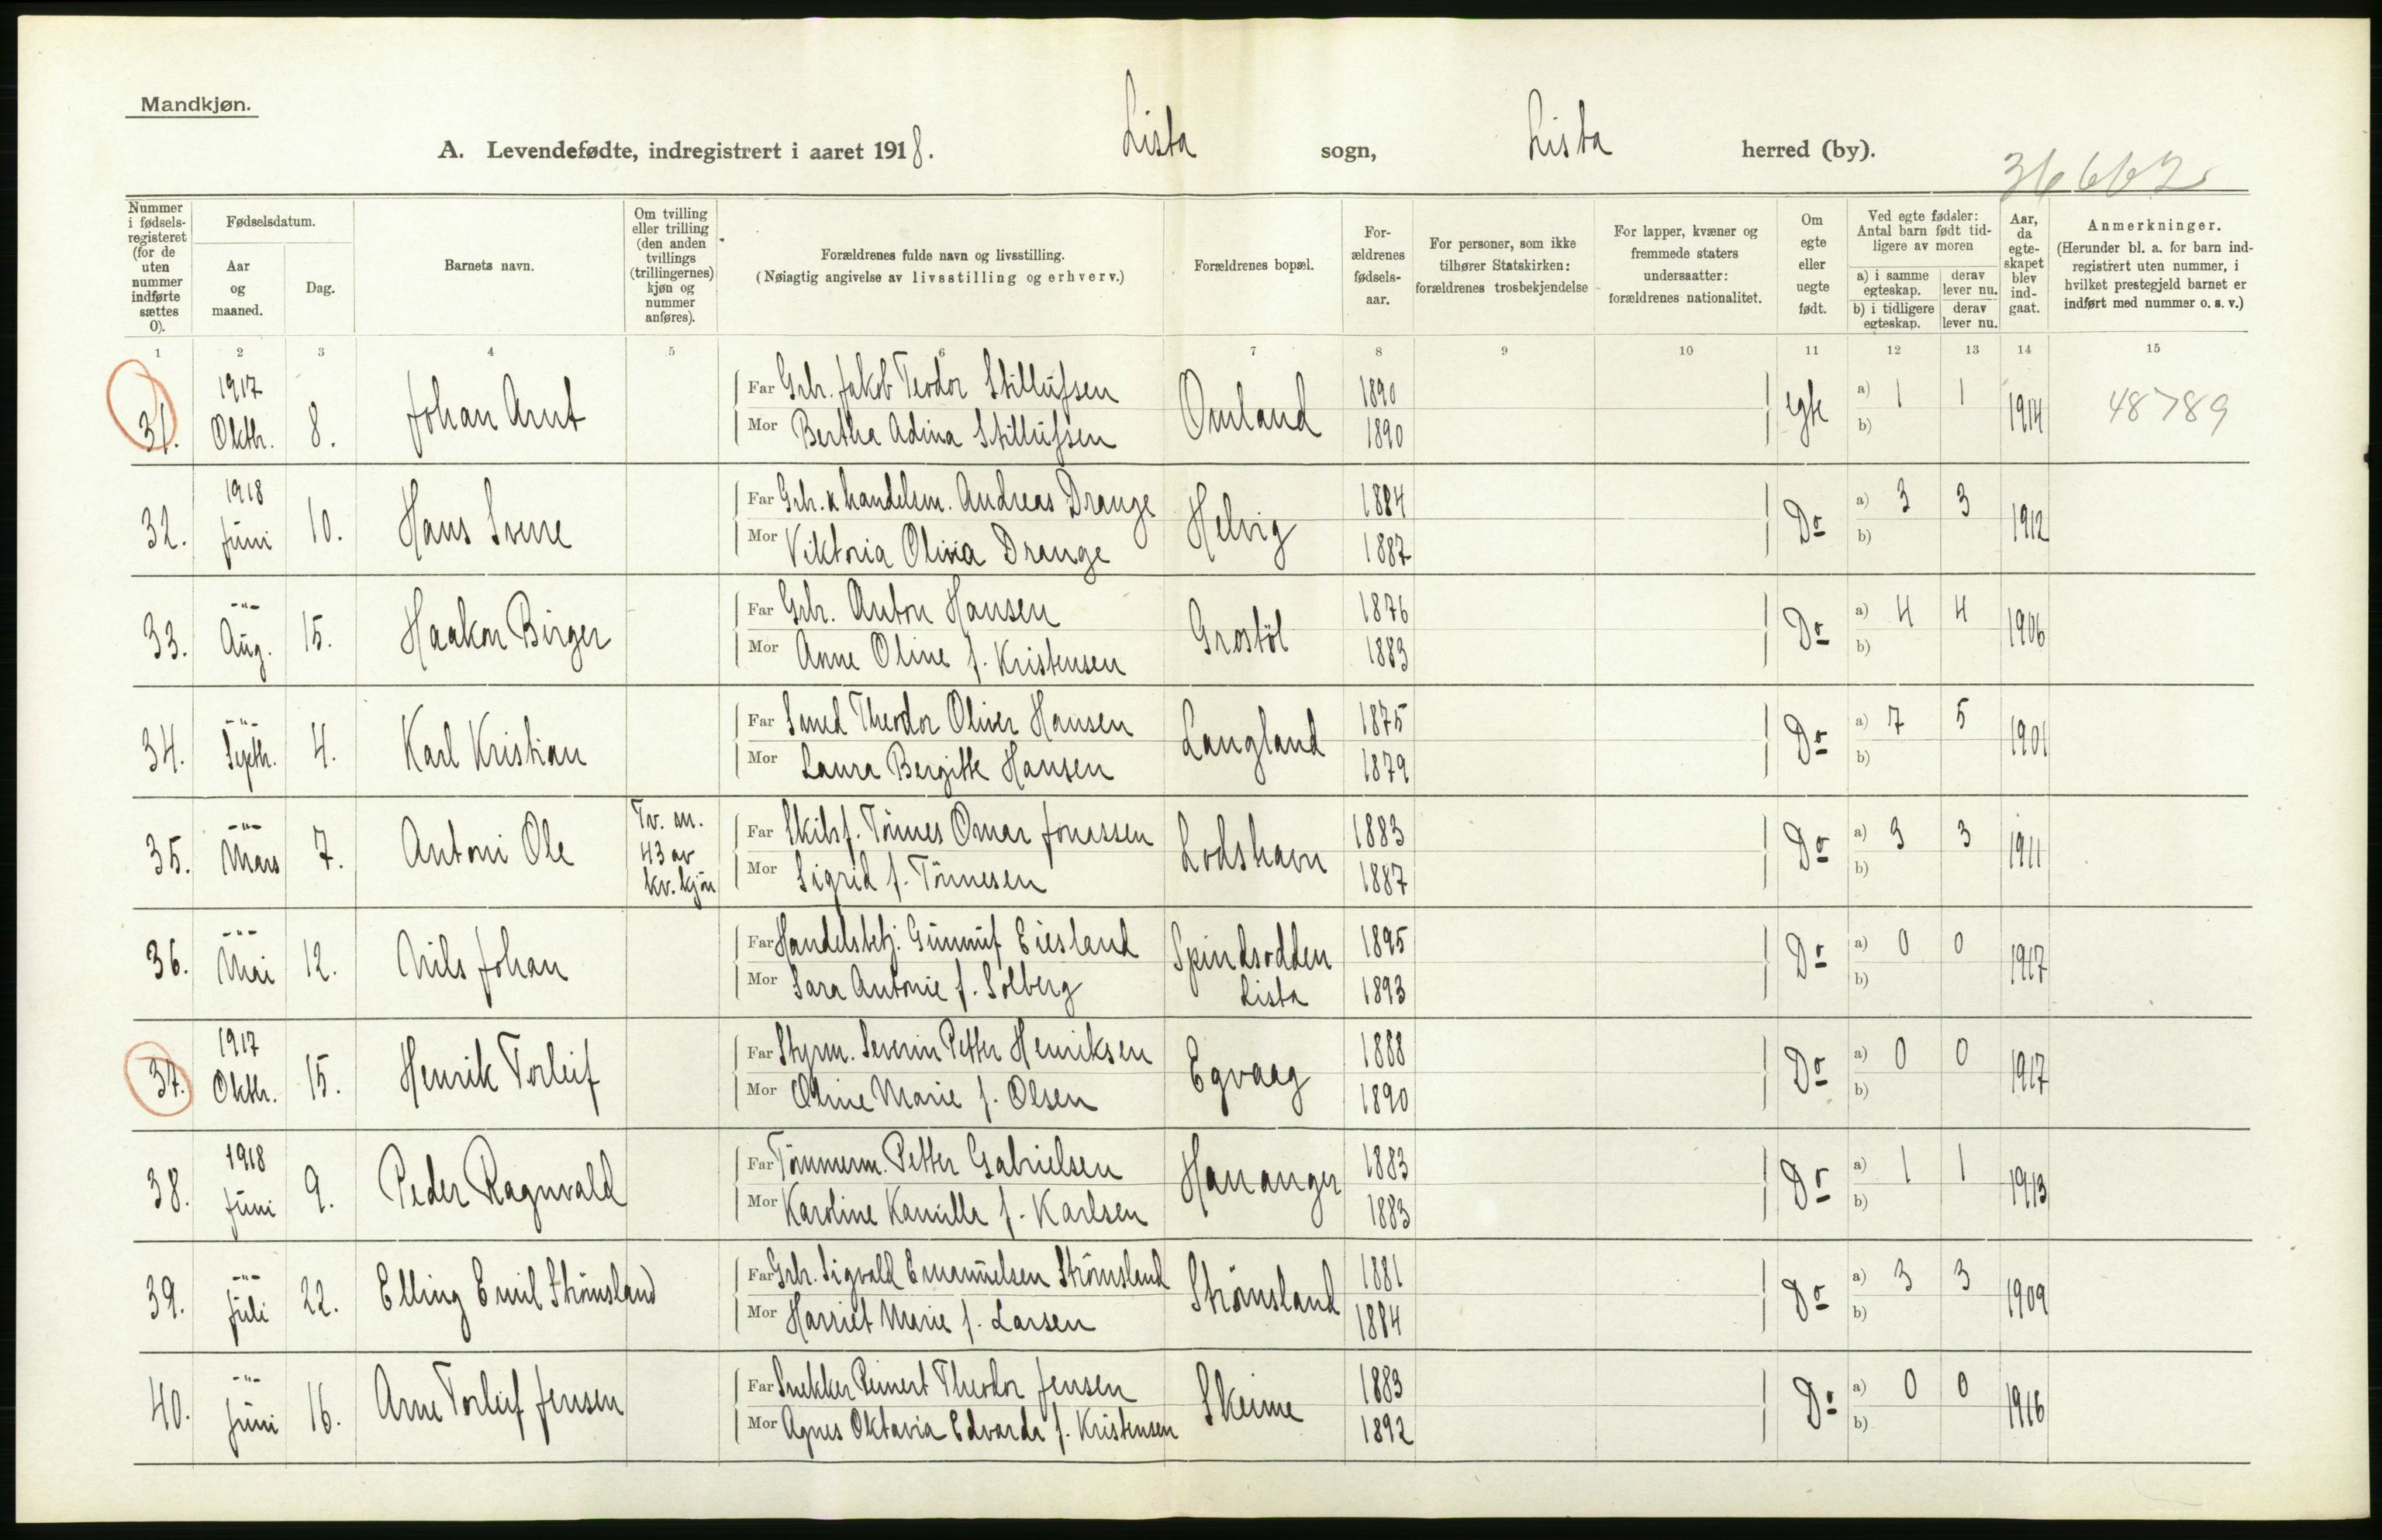 Mandkjøn.
A. Levendefødte, indregistrert i aaret 1918. Lista sogn, Lista herred (by).
36662
Nummer i fødsels-registeret (for de uten nummer indførte sættes 0).
Fødselsdatum.
Aar og maaned.
Dag.
Barnets navn.
Om tvilling eller trilling (den anden tvillings (trillingernes) kjøn og nummer anføres).
Forældrenes fulde navn og livsstilling.
(Nøiagtig angivelse av livsstilling og erhverv.)
Forældrenes bopæl.
For-ældrenes fødsels-aar.
For personer, som ikke tilhører Statskirken: forældrenes trosbekjendelse
For lapper, kvæner og fremmede staters undersaatter: forældrenes nationalitet.
Om egte eller uegte født.
Ved egte fødsler: Antal barn født tid-ligere av moren
a) i samme egteskap. derav lever nu.
b) i tidligere egteskap. derav lever nu.
Aar, da egte-skapet blev ind-gaat.
Anmerkninger.
(Herunder bl. a. for barn ind-registrert uten nummer, i hvilket prestegjeld barnet er indført med nummer o. s. v.)
1 2 3 4 5 6 7 8 9 10 11 12 13 14 15
31. 1917 Oktb. 8. Johan Arnt Far Grb. Jakob Teodor Stillufsen Omland 1890 egte a) 1 1 1914 48789
Mor Bertha Adina Stillufsen 1890 b)
32. 1918 Juni 10. Hans Sverre Far Grb. & handelsm. Andreas Drange Helvig 1884 Do a) 3 3 1912
Mor Viktoria Olivia Drange 1887 b)
33. -"- Aug. 15. Haakon Birger Far Grb. Anton Hansen Grostöl 1876 Do a) 4 4 1906
Mor Anne Oline f. Kristensen 1883 b)
34. -"- Septb. 4. Karl Kristian Far Smed Theodor Oliver Hansen Langland 1875 Do a) 7 5 1901
Mor Laura Bergitte Hansen 1879 b)
35. -"- Mars 7. Antoni Ole Tv. m. 43 av kv. kjön Far Skibsf. Tönnes Omar Jonassen Lodshavn 1883 Do a) 3 3 1911
Mor Sigrid f. Tönnesen 1887 b)
36. -"- Mai 12. Nils Johan Far Handelsbetj. Gunnuf Eiesland Spindsodden Lista 1895 Do a) 0 0 1917
Mor Sara Antonie f. Solberg 1893 b)
37. 1917 Oktb. 15. Henrik Torleif Far Styrm. Severin Petter Henriksen Egvaag 1888 Do a) 0 0 1917
Mor Oline Marie f. Olsen 1890 b)
38. 1918 Juni 9. Peder Ragnvald Far Tömmerm. Petter Gabrielsen Hananger 1883 Do a) 1 1 1913
Mor Karoline Kamilla f. Karlsen 1883 b)
39. -"- Juli 22. Elling Emil Strömsland Far Grb. Sigvald Emanuelsen Strömsland Strömsland 1881 Do a) 3 3 1909
Mor Harriet Marie f. Larsen 1884 b)
40. -"- Juni 16. Arne Torleif Jensen Far Snekker Reinert Theodor Jensen Skeime 1883 Do a) 0 0 1916
Mor Agnes Oktavia Edvarda f. Kristensen 1892 b)